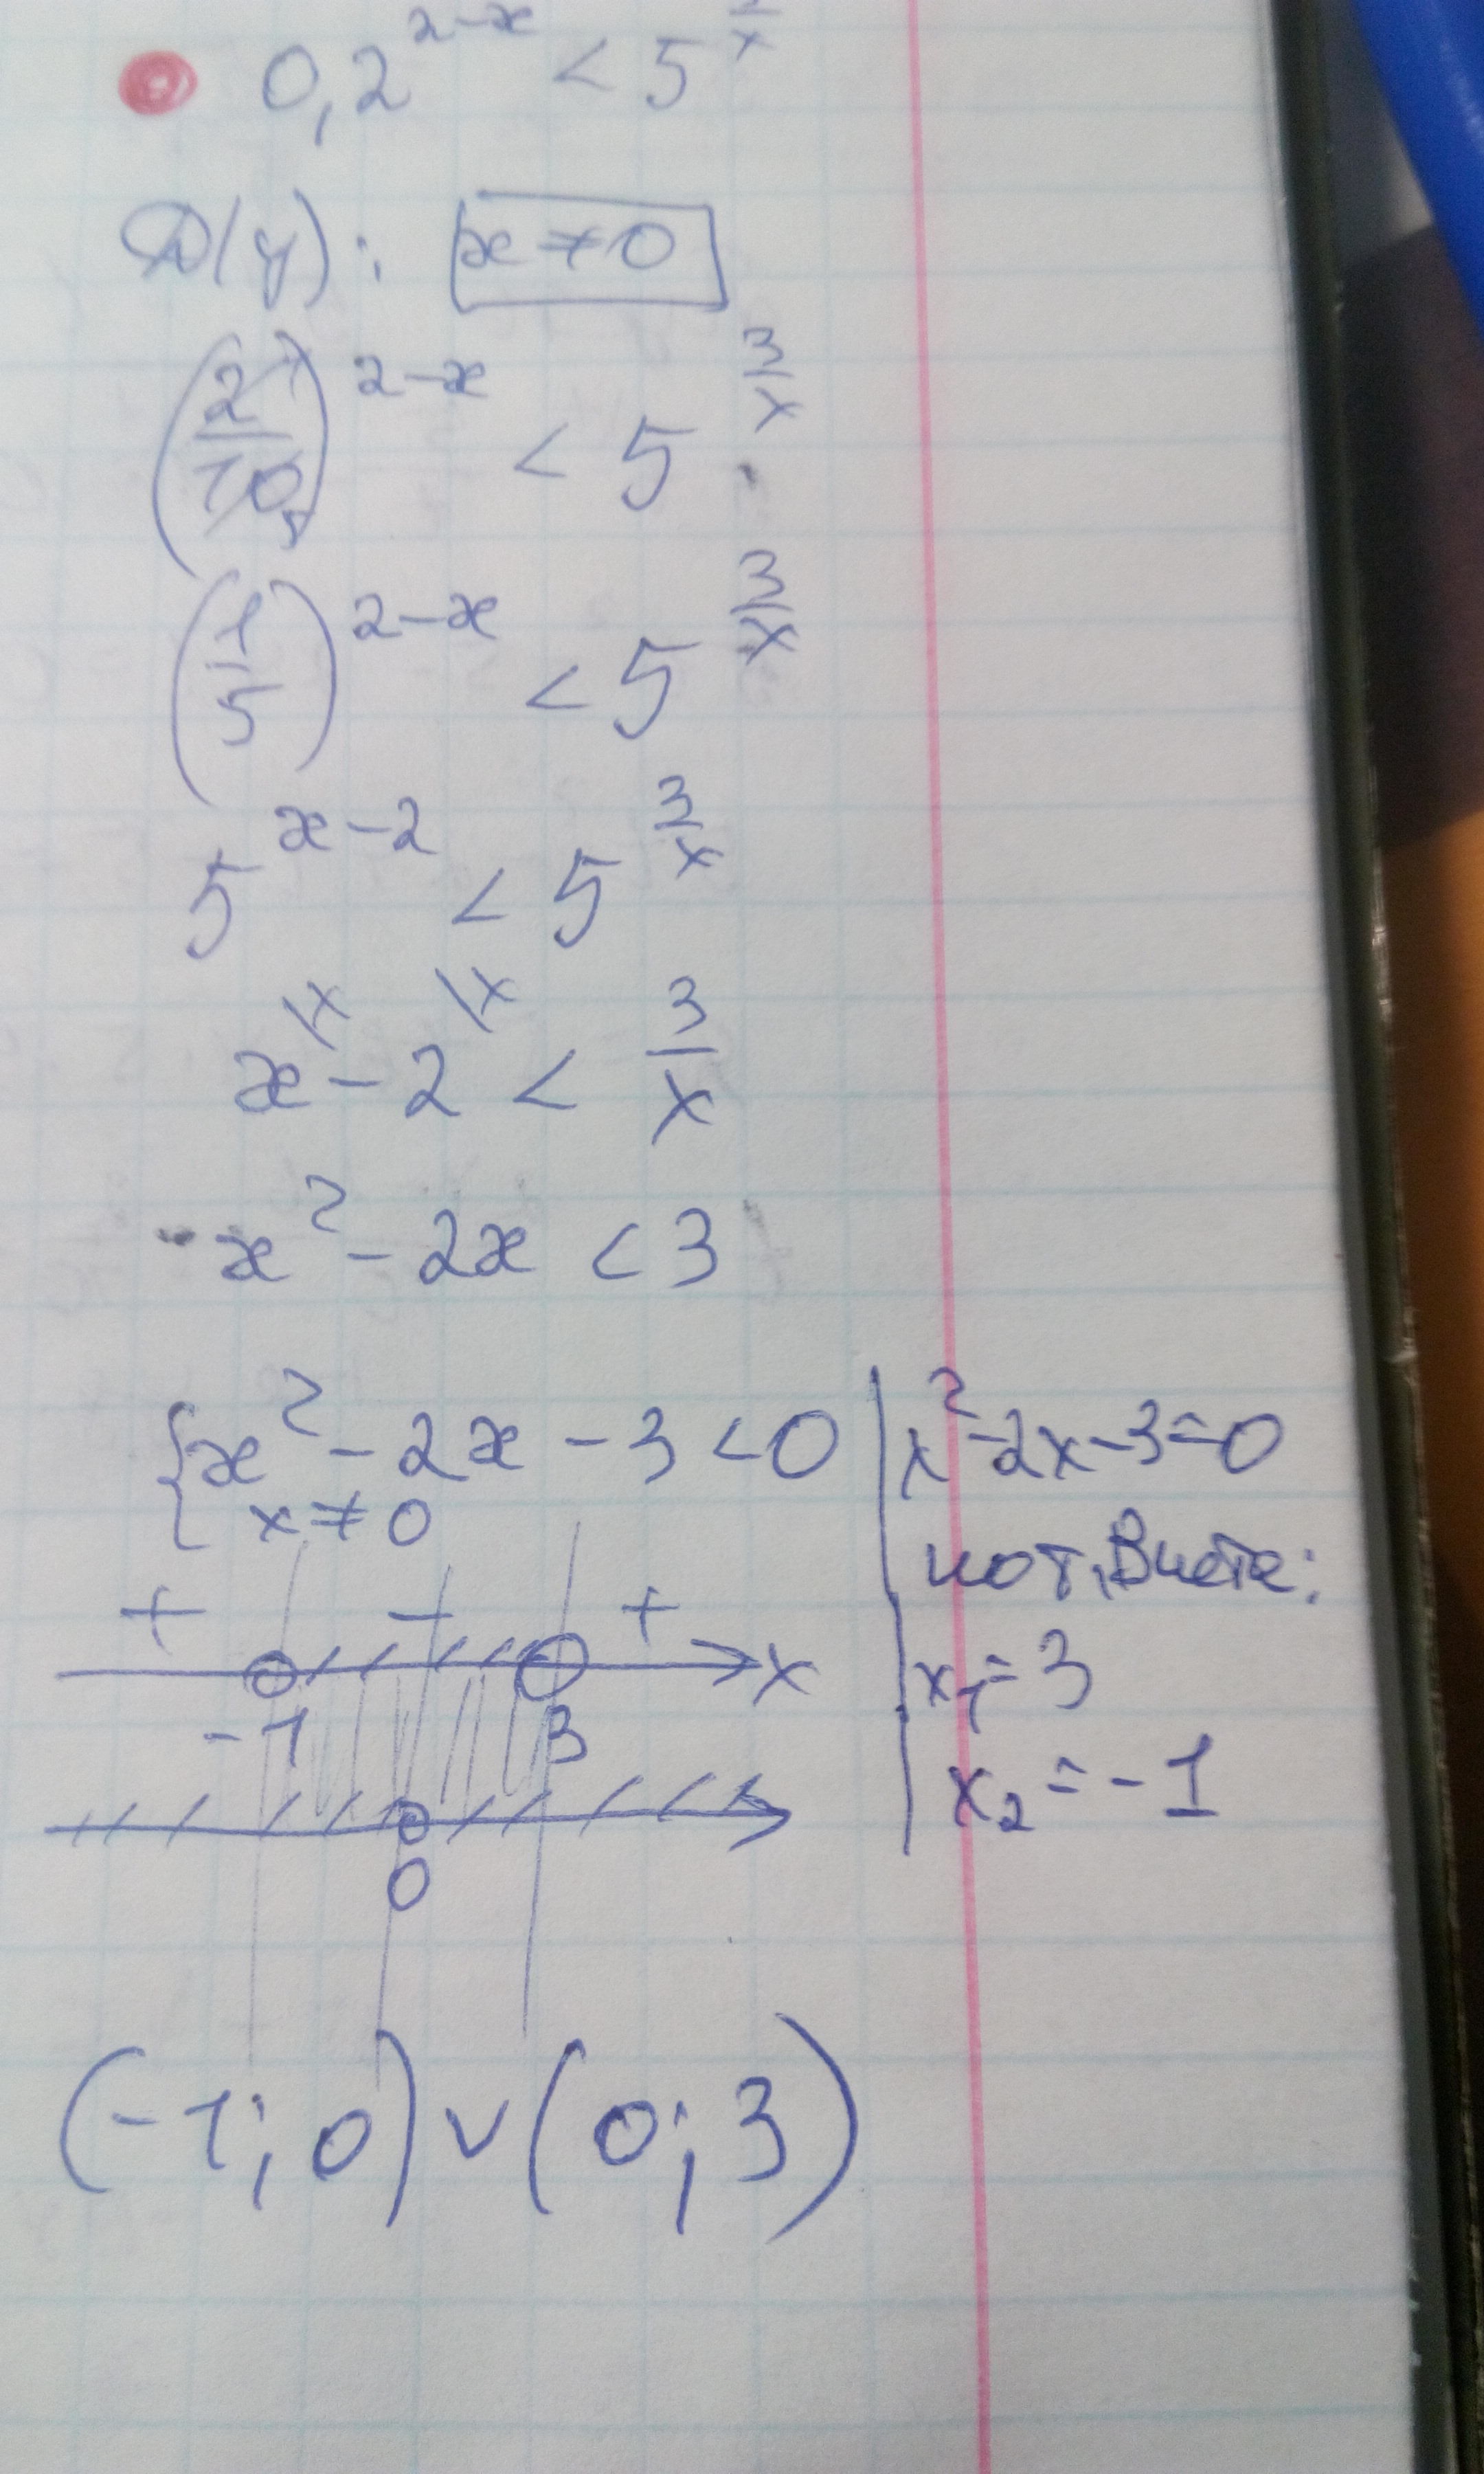 0,2^(2-x) < 5^(3/x)
D(y): x≠0
(2/10)^(2-x) < 5^(3/x)
(1/5)^(2-x) < 5^(3/x)
5^(x-2) < 5^(3/x)
x^(\x) - 2^(\x) < 3/x
x² - 2x < 3
{x² - 2x - 3 < 0
x≠0
+ - + x
-1 3
0
x²-2x-3=0
по т. Виета:
x₁=3
x₂=-1
(-1; 0) ∨ (0; 3)